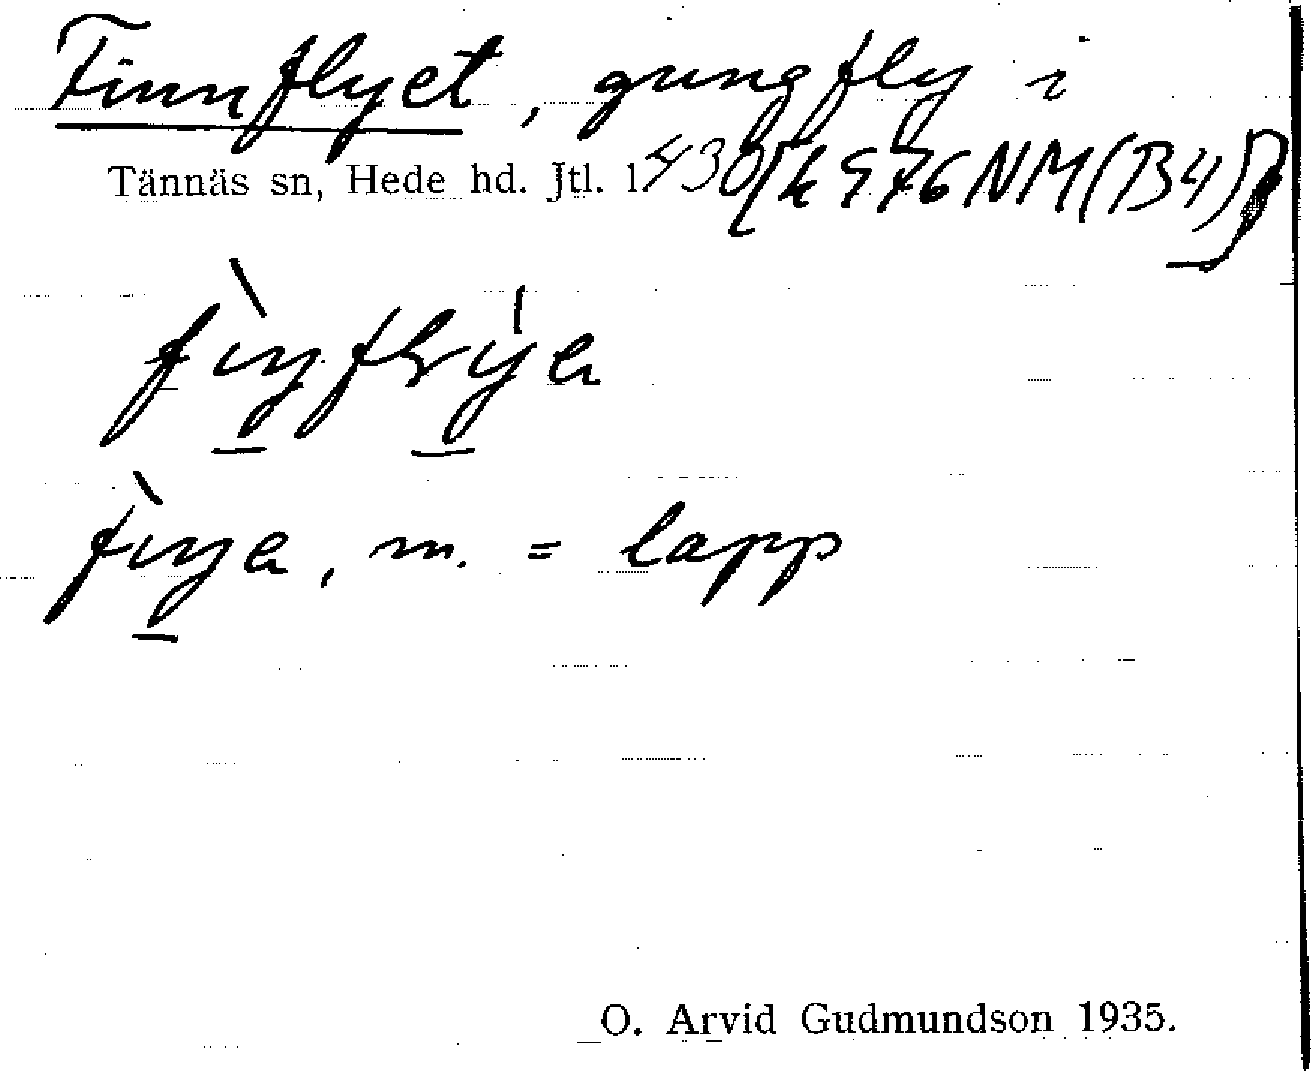 Finnflyet, gungfly i
Tännäs sn, Hede hd. Jtl. l. 430 [k 976 NM (B4)]
fìnya, m. = lapp
O. Arvid Gudmundson 1935.